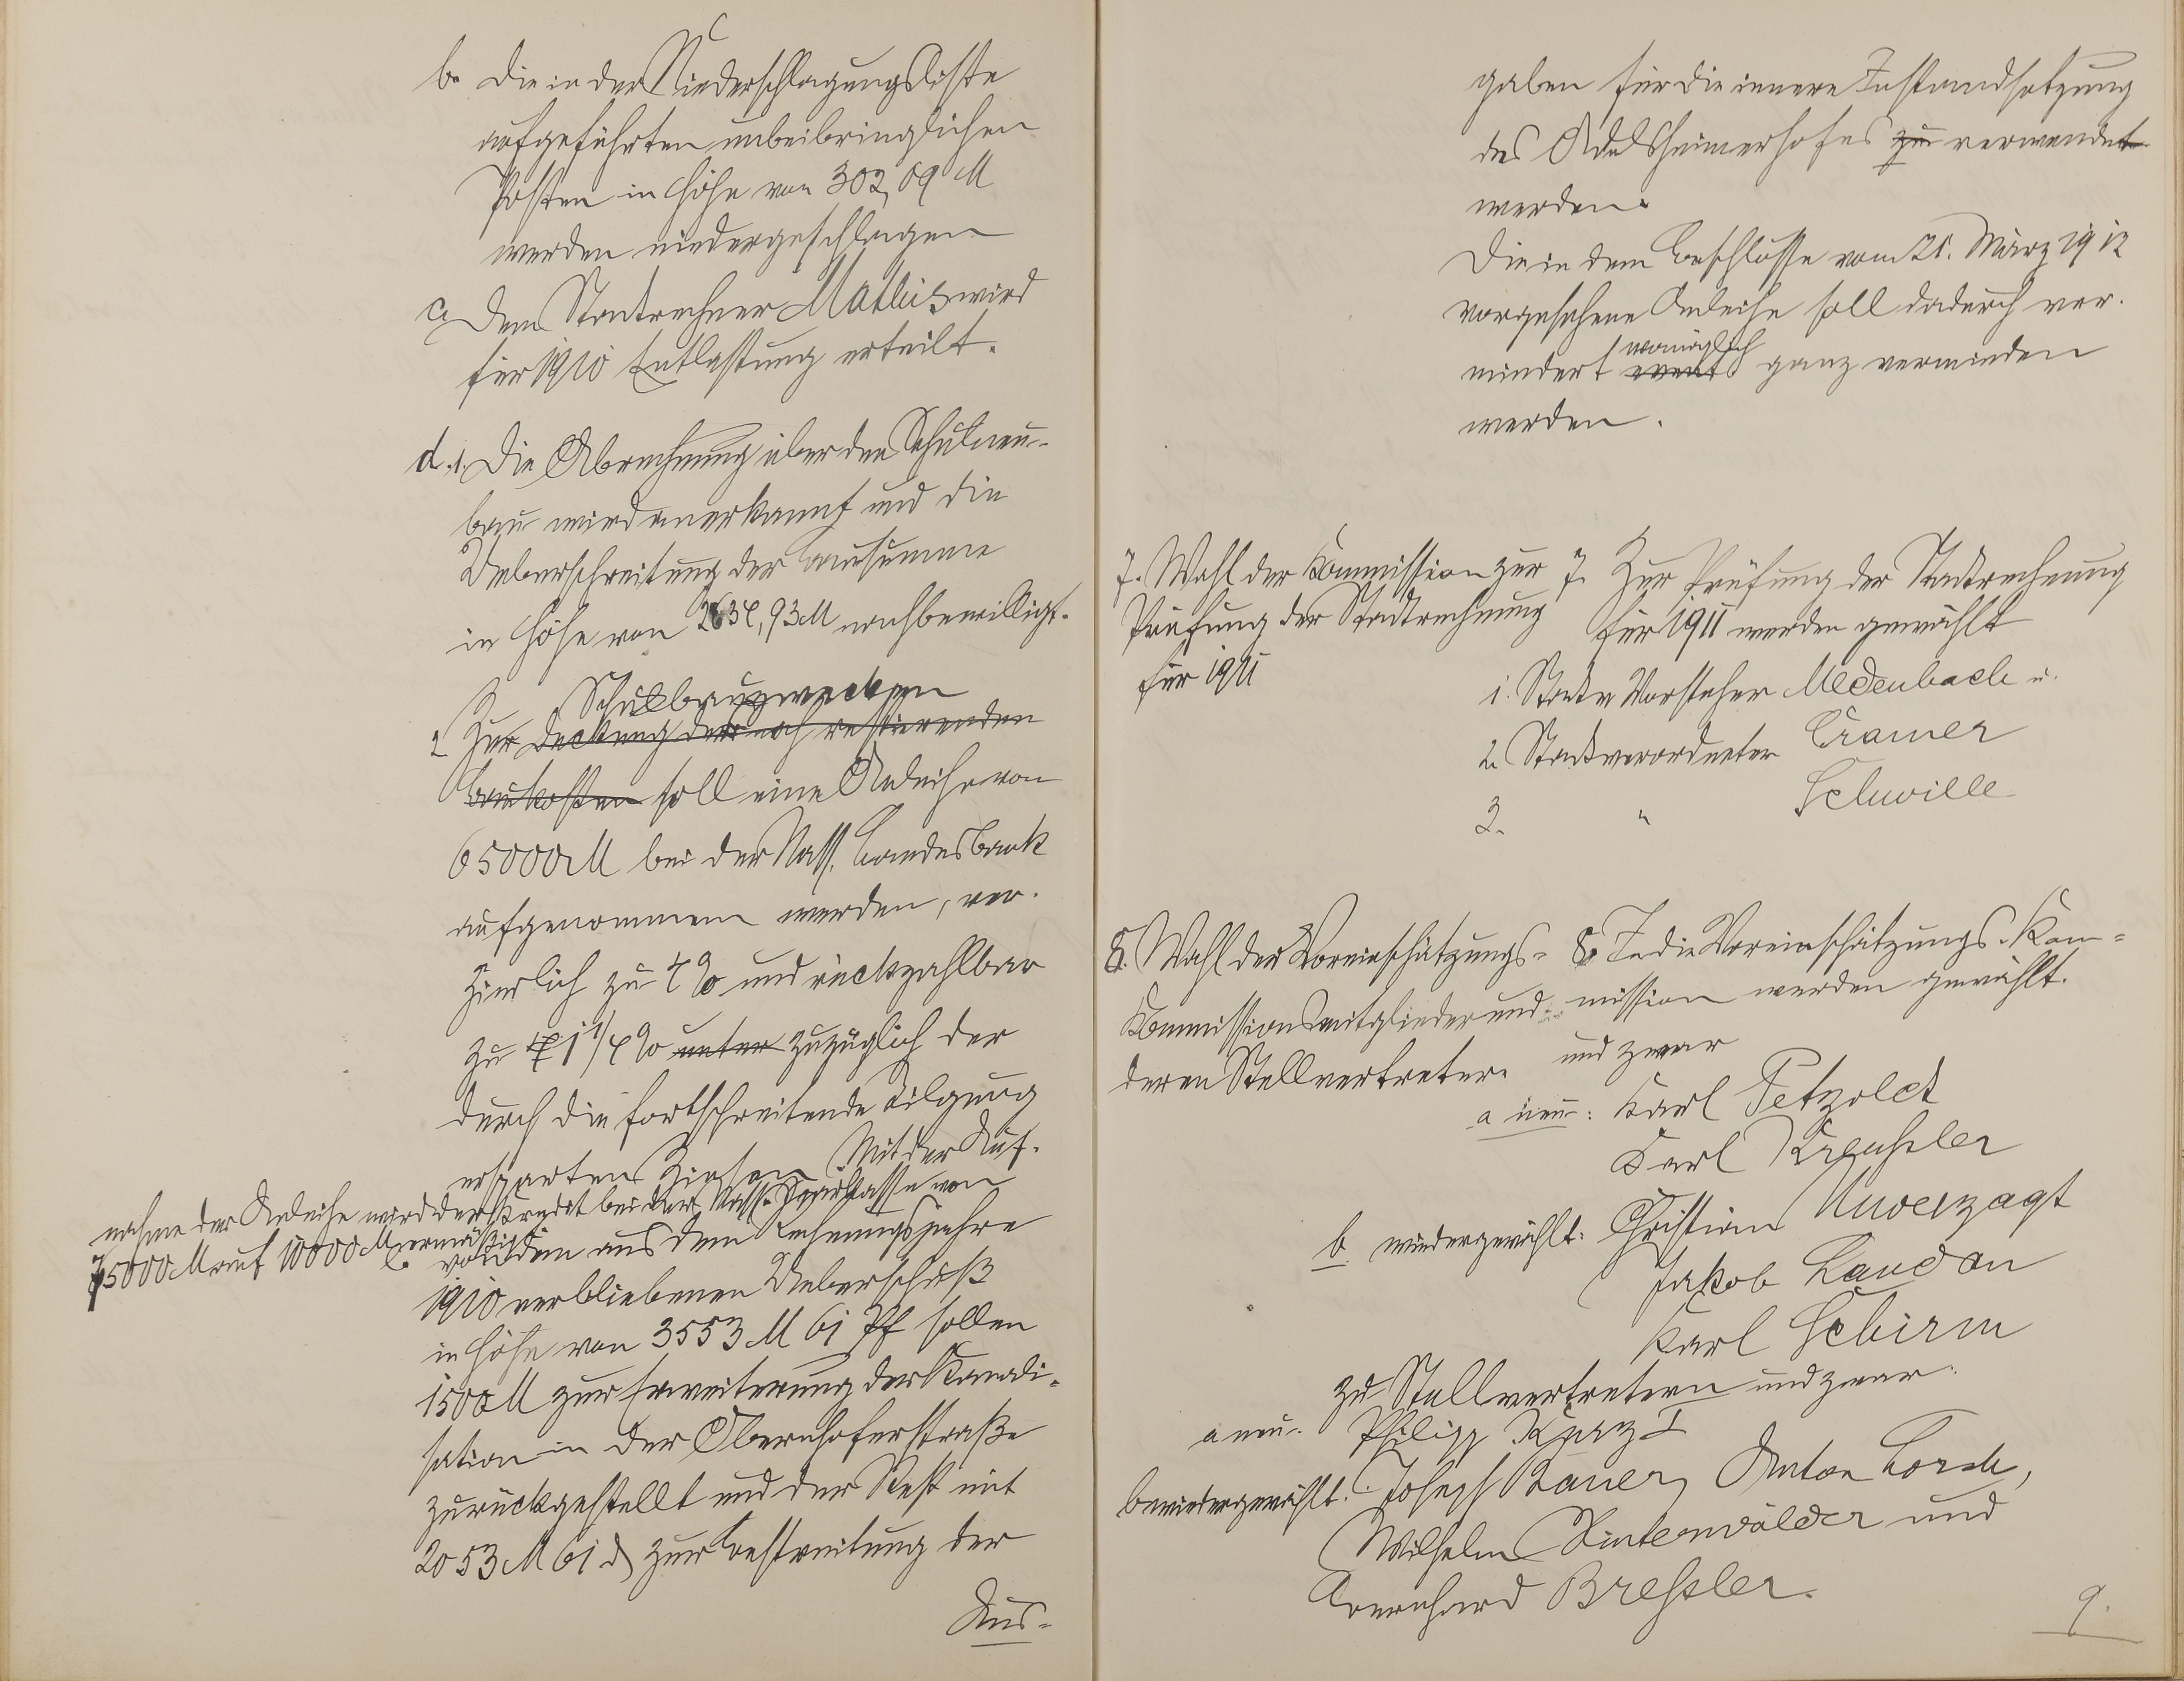 b. Die in der Niederschlagungsliste
aufgeführten unbeibringlichen
Posten in Höhe von 302,09 M
werden niedergeschlagen
c, Dem Stadtrechner Mathis wird
für 1910 Entlastung erteilt.
d. 1. Die Abrechnung über den Schulneu-
bau wird anerkannt und die
Ueberschreitung der Bausumme
in Höhe von 2634,93 M nachbewilligt.
Schulbauzwecken
2 Zur Deckung der noch restierenden
Baukosten soll eine Anleihe von
65000 M bei der Nass. Landesbank
aufgenommen werden, ver-
zinslich zu 4% und rückzahlbar
zu 1 1/4 % unter zuzüglich der
durch die fortschreitende Tilgung
ersparten Zinsen Mit der Auf-
nahme der Anleihe wird der Kredit bei der Nass. Sparkasse von
75000 M auf 10000 M ermäßigt
e. von dem aus dem Rechnungsjahre
1910 verbliebenen Ueberschuß
in Höhe von 3553 M 61 Pf sollen
1500 M zur Erweiterung der Kanali-
sation in der Obernhoferstraße
zurückgestellt und der Rest mit
2053 M 61 d zur Bestreitung der
Aus-
gaben für die innere Instandsetzung
des Adelsheimerhofes zu verwendet
werden.
Die in dem Beschlusse vom 21. März 1912
vorgesehene Anleihe soll dadurch ver-
womöglich
mindert event ganz vermieden
werden.
7. Wahl der Kommission zur
Prüfung der Stadtrechnung
für 1911
7. Zur Prüfung der Stadtrechnung
für 1911 werden gewählt
1. Stadtv Vorsteher Medenbach u.
2. Stadtverordneter Cramer
3. " Schwille
8. Wahl der Voreinschätzungs-
Kommissionsmitglieder und
deren Stellvertreter.
8. In die Voreinschätzungs-Kom-
mission werden gewählt.
und zwar
a neu: Karl Petzoldt
Karl Kreußler
b wiedergewählt: Christian Unverzagt
Jakob Landau
Karl Schirm
zu Stellvertretern und zwar:
a neu: Philipp Kurz I
b wiedergewählt: Joseph Bauer, Anton Lorch,
Wilhelm Hinterwälder und
Bernhard Breßler.
9.